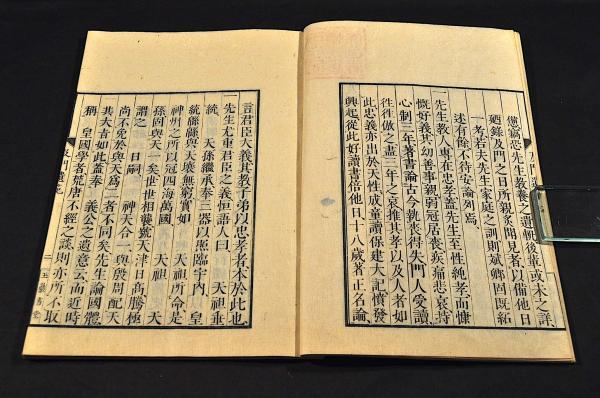 憊竊恐先生教養之遺軌後輩或未之詳
廼錄及門之日所親炙聞見者以備他日
一考若夫先生家庭之訓則斌卿固既紹
述有餘不待安論列焉
一先生教人專在忠孝蓋先生至性純孝而慷
慨好義其幼善事親弱冠居喪疾痛悲哀持
心制三年著書論古今執喪得失門人受讀
往往倣之盡三年之哀推其孝以及人者如
此忠義亦出於天性成童讀保建大記憤發
興起從此好讀書倍他日十八歲著正名論
言君臣大義其教子弟以忠孝者本於此也
一先生尤重君臣之義恒語人曰 天祖垂
統 天孫繼承奉三器以照臨宇内 皇
統緜緜與天壤無窮實如 天祖所命是
神州之所以冠四海萬國 天祖 天
孫固與天一矣世世相襲號天津日高騰極
謂之 日嗣 神天合一與殷周配天
尚不免於與天爲二者不同矣先生論國體
其大旨如此蓋奉 義公之遺意云而近時
稱 皇國學者荒唐不經之談則亦所不取